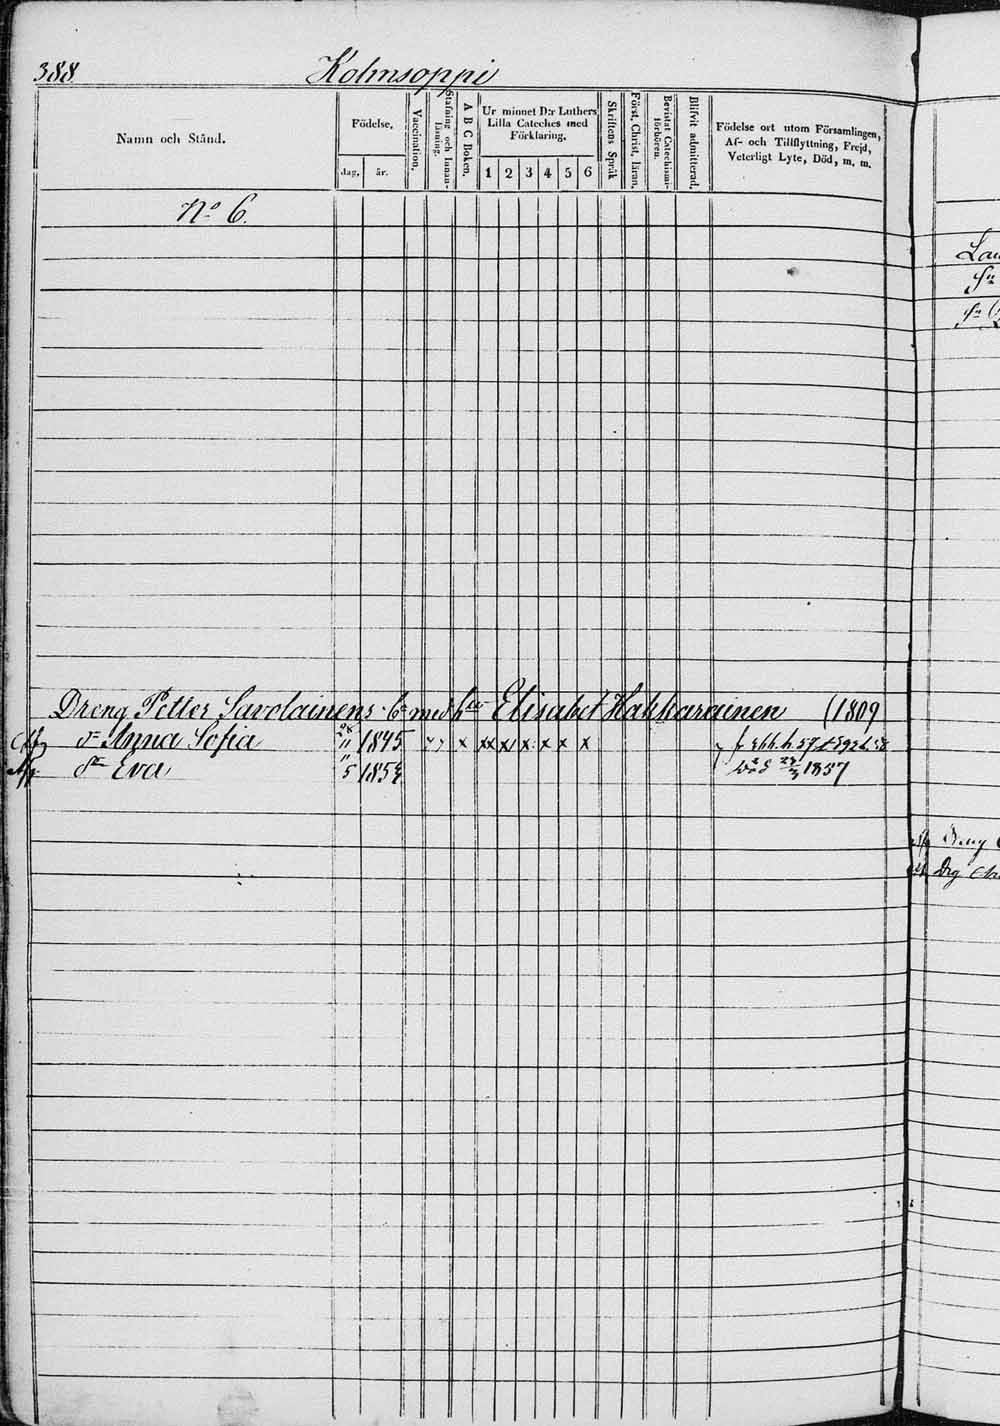 388.
Kolmsoppi
Namn och Stånd.
Födelse,
dag, år.
Vaccination.
Stafning och Innanläsning.
A B C Boken.
Ur minnet D:r Luthers Lilla Cateches med Förklaring.
1 2 3 4 5 6
Skriftens Språk
Först. Christ. läran.
Bevistat Catechismiförhören.
Blifvit admitterad.
Födelse ort utom Församlingen,
Af- och Tillflyttning, Frejd,
Veterligt Lyte, Död, m. m.
No 6.
Dreng Petter Savolainens bn med h Elisabet Hakkarainen (1809
dr Anna Sofia 28 11 1845 x xx x x x x x
dr Eva 11 5 1854 1857
Drg